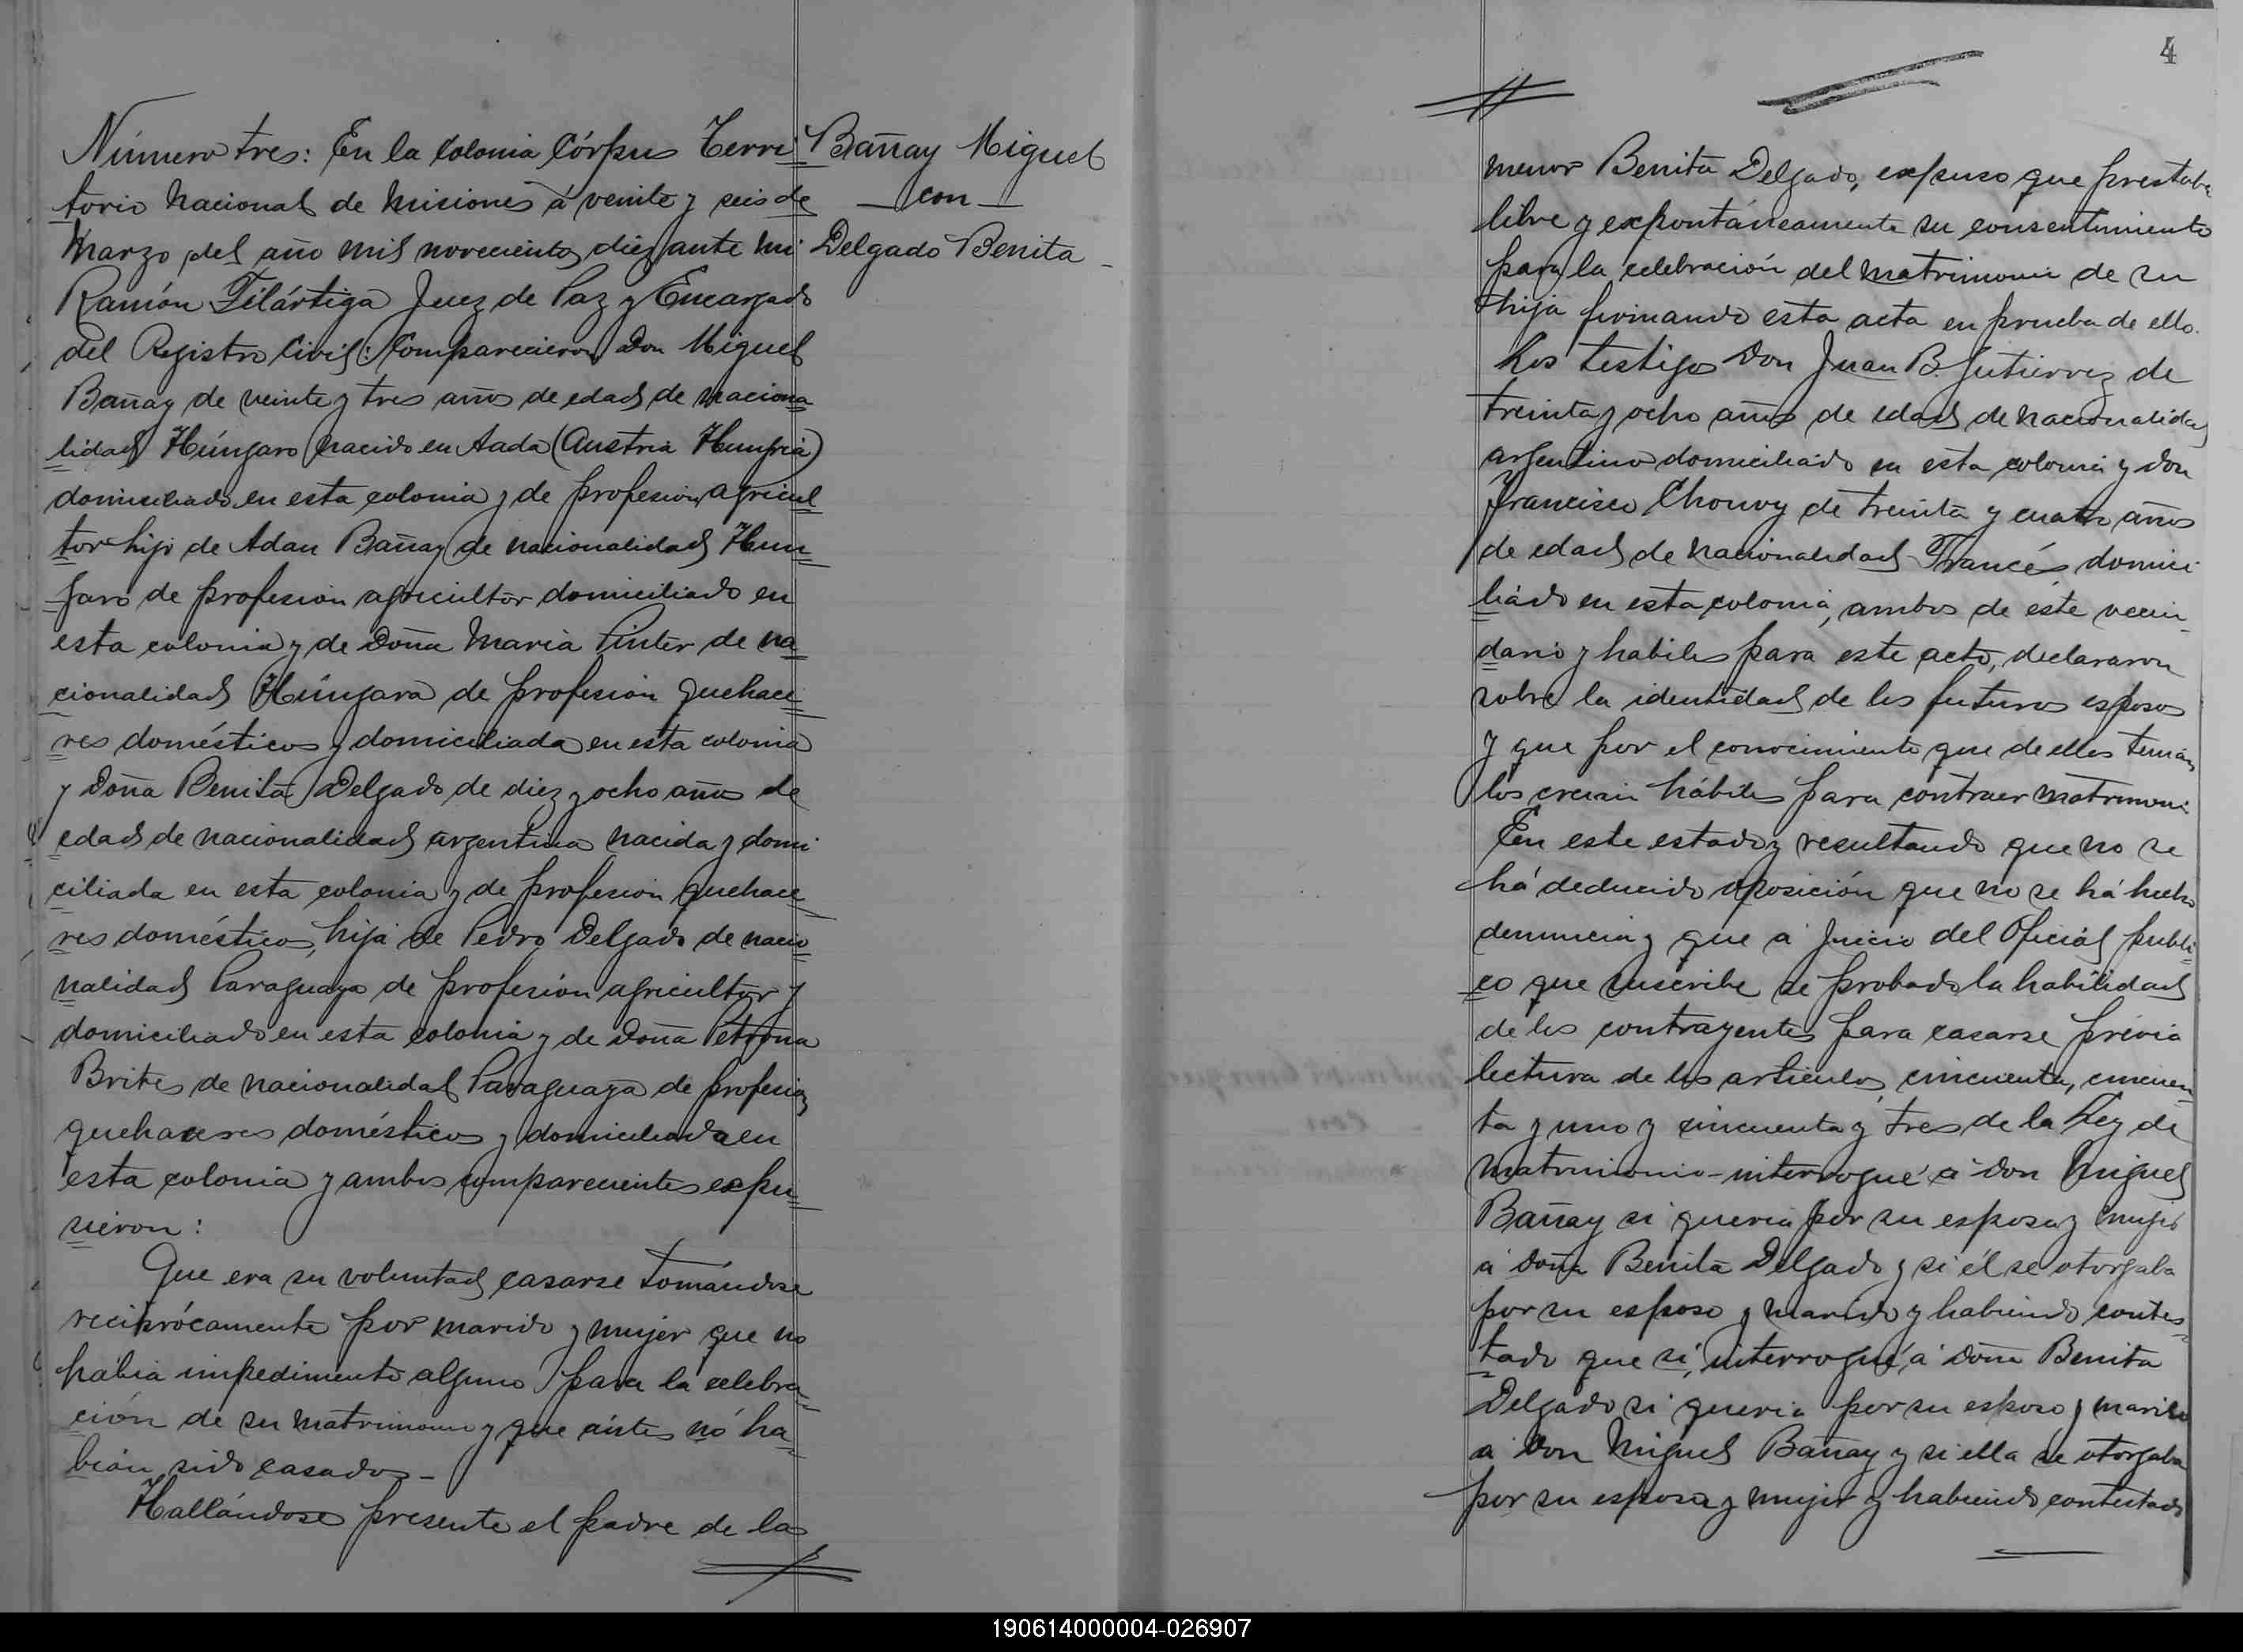 Número tres: En la Colonia Córpus Terri
torio Nacional de Misiones á veinte y seis de
Marzo del año mil novecientos diez ante mi
Ramón Filártiga Juez de Paz y Encargado
del Registro Civil: Comparecieron Don Miguel
Bañay de veinte y tres años de edad de naciona
lidad Húngaro nacido en Aada (Austria Hungria)
domiciliado en esta colonia y de profesion agricul
tor hijo de Adan Bañay de nacionalidad Hun
garo de profesion agricultor domiciliado en
esta colonia y de Doña Maria Pinter de na
cionalidad Húngara de profesion quehace
res domésticos y domiciliada en esta colonia
y Doña Benita Delgado de diez y ocho años de
edad de nacionalidad argentina nacida y domi
ciliada en esta colonia y de profesion quehace
res domésticos, hija de Pedro Delgado de nacio
nalidad Paraguaya de profesión agricultor y
domiciliado en esta colonia y de Doña Petrona
Brites de nacionalidad Paraguaya de profesion
quehaceres domésticos y domiciliada en
esta colonia y ambos comparecientes expu
sieron:
Que era su voluntad casarse tomándose
recíprócamente por marido y mujer que no
habia impedimento alguno para la celebra
ción de su matrimonio y que ántes nó ha
bian sido casados -
Hallándose presente el padre de la
Bañay Miguel
- con -
Delgado Benita
4
menor Benita Delgado, expuso que prestaba
libre y expontáneamente su consentimiento
para la celebración del matrimonio de su
hija firmando esta acta en prueba de ello.
Los testigos Don Juan B. Gutierrez de
treinta y ocho años de edad de nacionalidad
argentino domiciliado en esta colonia y don
Francisco Chouvy de treinta y cuatro años
de edad de nacionalidad Francés domici
liado en esta colonia, ambos de este vecin
dario y habiles para este acto, declararon
sobre la identidad de los futuros esposos
y que por el conocimiento que de ellos tenian
los creian hábiles para contraer matrimonio
En este estado y resultando que no se
há deducido oposición que no se há hecho
denuncia y que a Juicio del Oficial publi
co que suscribe se probado la habilidad
de los contrayentes para casarse prévia
lectura de los articulos, cincuenta, cincuen
ta y uno y cincuenta y tres de la Ley de
matrimonio - interrogué á don Miguel
Bañay si queria por su esposa y mujer
á doña Benita Delgado y si él se otorgaba
por su esposo y marido y habiendo contes
tado que sí, interrogué á doña Benita
Delgado si queria por su esposo y marido
a Don Miguel Bañay y si ella se otorgaba
por su esposa y mujer y habiendo contestado
190614000004-026907